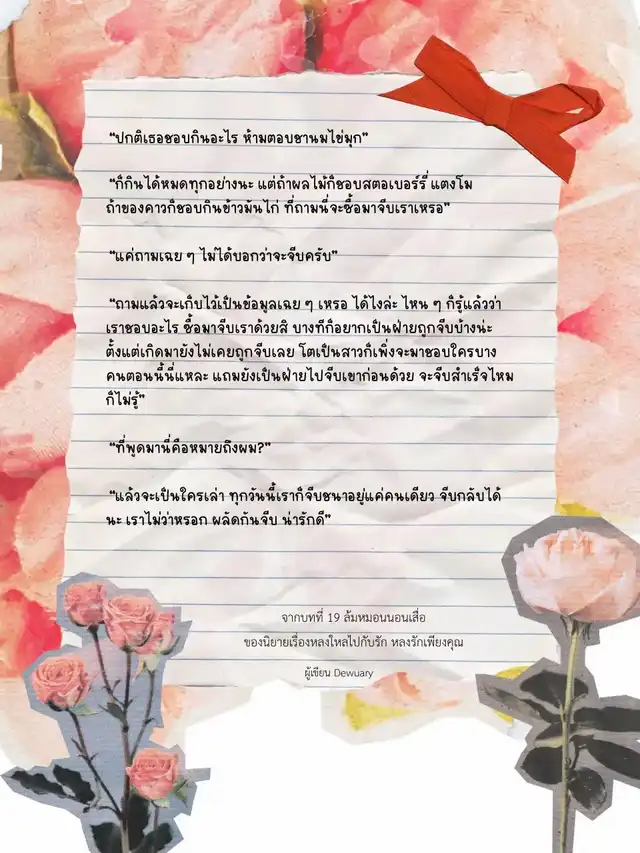 “ปกติเธอชอบกินอะไร ห้ามตอบชานมไข่มุก”
“ก็กินได้หมดทุกอย่างนะ แต่ถ้าผลไม้ก็ชอบสตอเบอร์รี่ แตงโม
ถ้าของคาวก็ชอบกินข้าวมันไก่ ที่ถามนี่จะซื้อมาจีบเราเหรอ”
“แค่ถามเฉย ๆ ไม่ได้บอกว่าจะจีบครับ”
“ถามแล้วจะเก็บไว้เป็นข้อมูลเฉย ๆ เหรอ ได้ไงล่ะ ไหน ๆ ก็รู้แล้วว่า
เราชอบอะไร ซื้อมาจีบเราด้วยสิ บางทีก็อยากเป็นฝ่ายถูกจีบบ้างน่ะ
ตั้งแต่เกิดมายังไม่เคยถูกจีบเลย โตเป็นสาวก็เพิ่งจะมาชอบใครบาง
คนตอนนี้นี่แหละ แถมยังเป็นฝ่ายไปจีบเขาก่อนด้วย จะจีบสำเร็จไหม
ก็ไม่รู้”
“ที่พูดมานี่คือหมายถึงผม?”
“แล้วจะเป็นใครเล่า ทุกวันนี้เราก็จีบชนาอยู่แค่คนเดียว จีบกลับได้
นะ เราไม่ว่าหรอก ผลัดกันจีบ น่ารักดี”
จากบทที่ 19 ล้มหมอนนอนเสื่อ
ของนิยายเรื่องหลงใหลไปกับรัก หลงรักเพียงคุณ
ผู้เขียน Dewuary